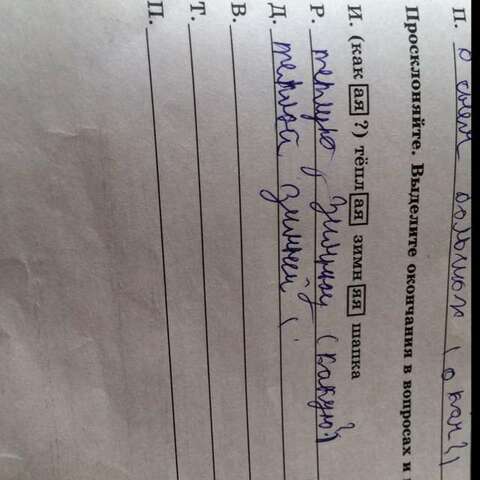 П. о своём большом (о как?)
Просклоняйте. Выделите окончания в вопросах и
И. (как ая ?) тёпл ая зимн яя шапка
Р. теплую, зимнюю (какую?)
Д. теплой зимней (
В.
Т.
П.